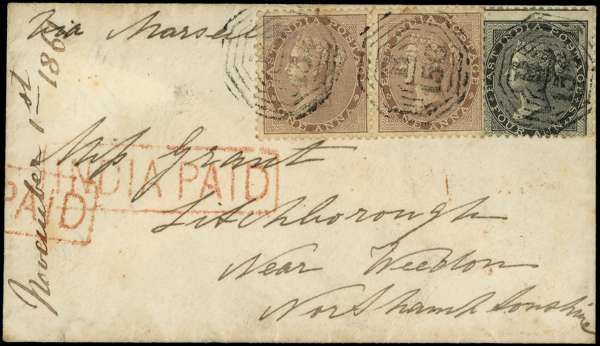 Via Marseil
EAST INDIA POSTAGE
ONE ANNA
EAST INDIA POSTAGE
ONE ANNA
EAST INDIA POSTAGE
FOUR ANNAS
B
156
November 1st
186
Miss Grant
INDIA PAID
PAID
Litchborough
Near Weedon
Northamptonshire